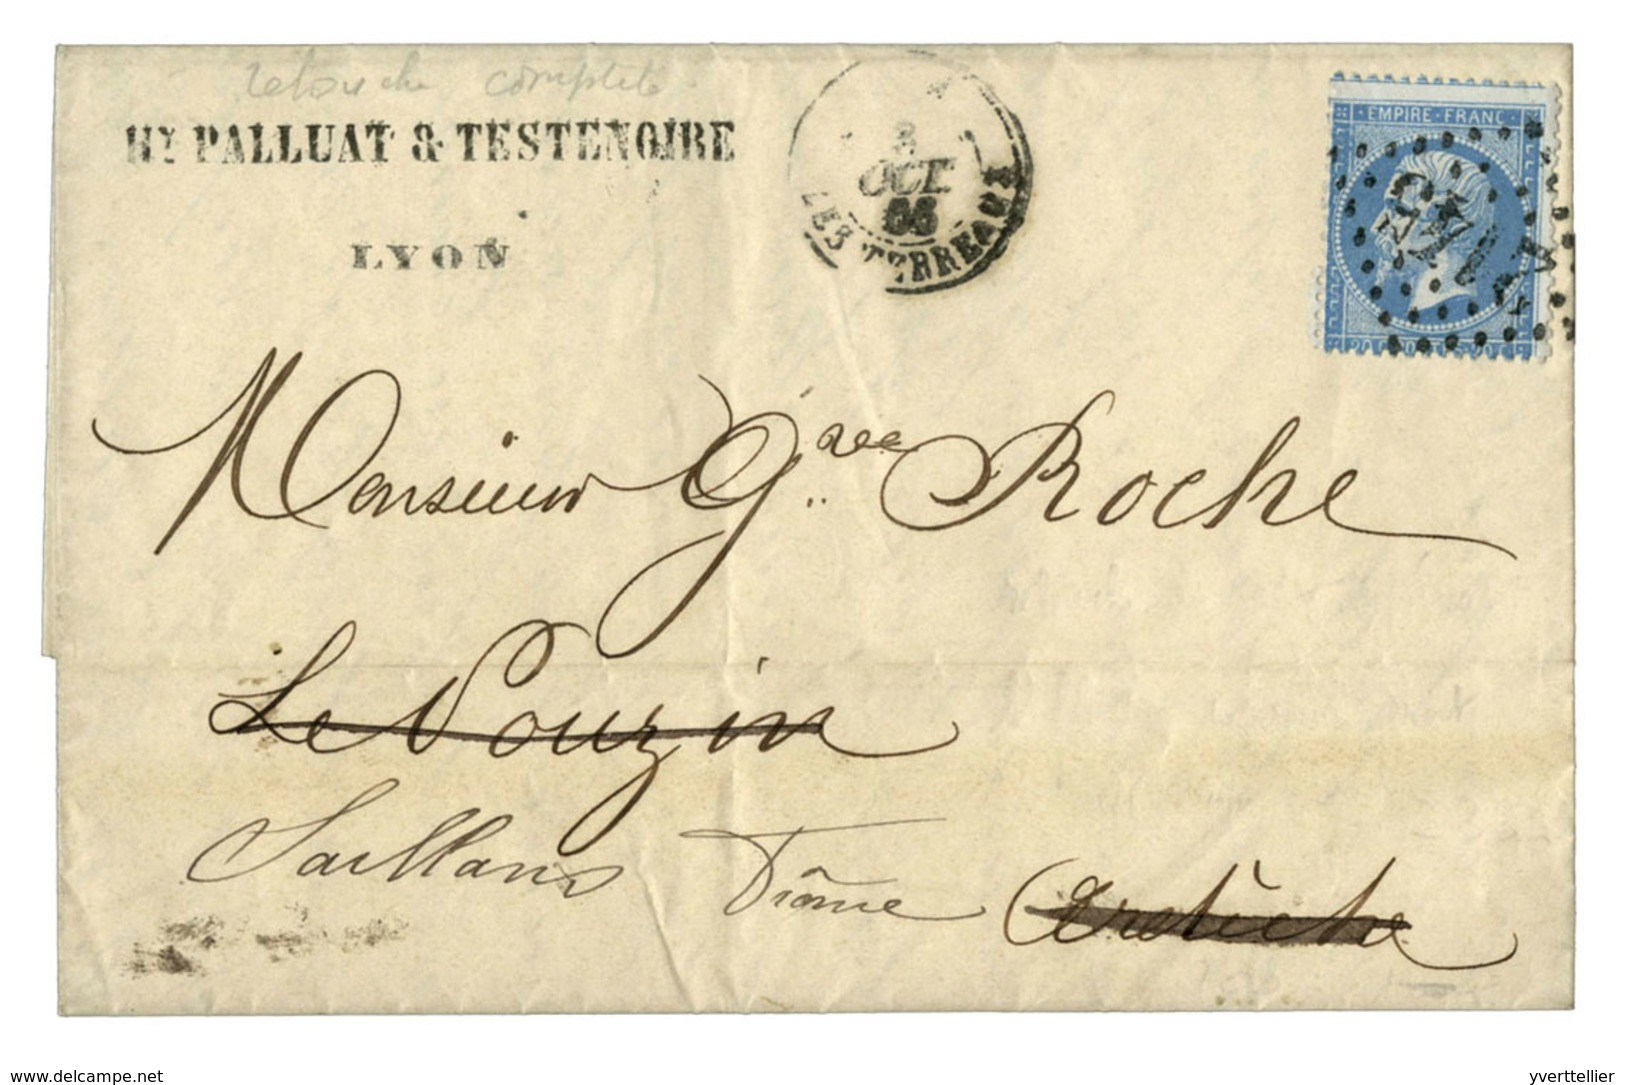 retouche complete
HY PALLUAT & TESTENOIRE
LYON
3
OCT.
66
LES TERREAUX
EMPIRE · FRANC
Monsieur Gve Roche
Le Pouzin
Saillans Drôme Ardèche
delcampe.net
yverttellier